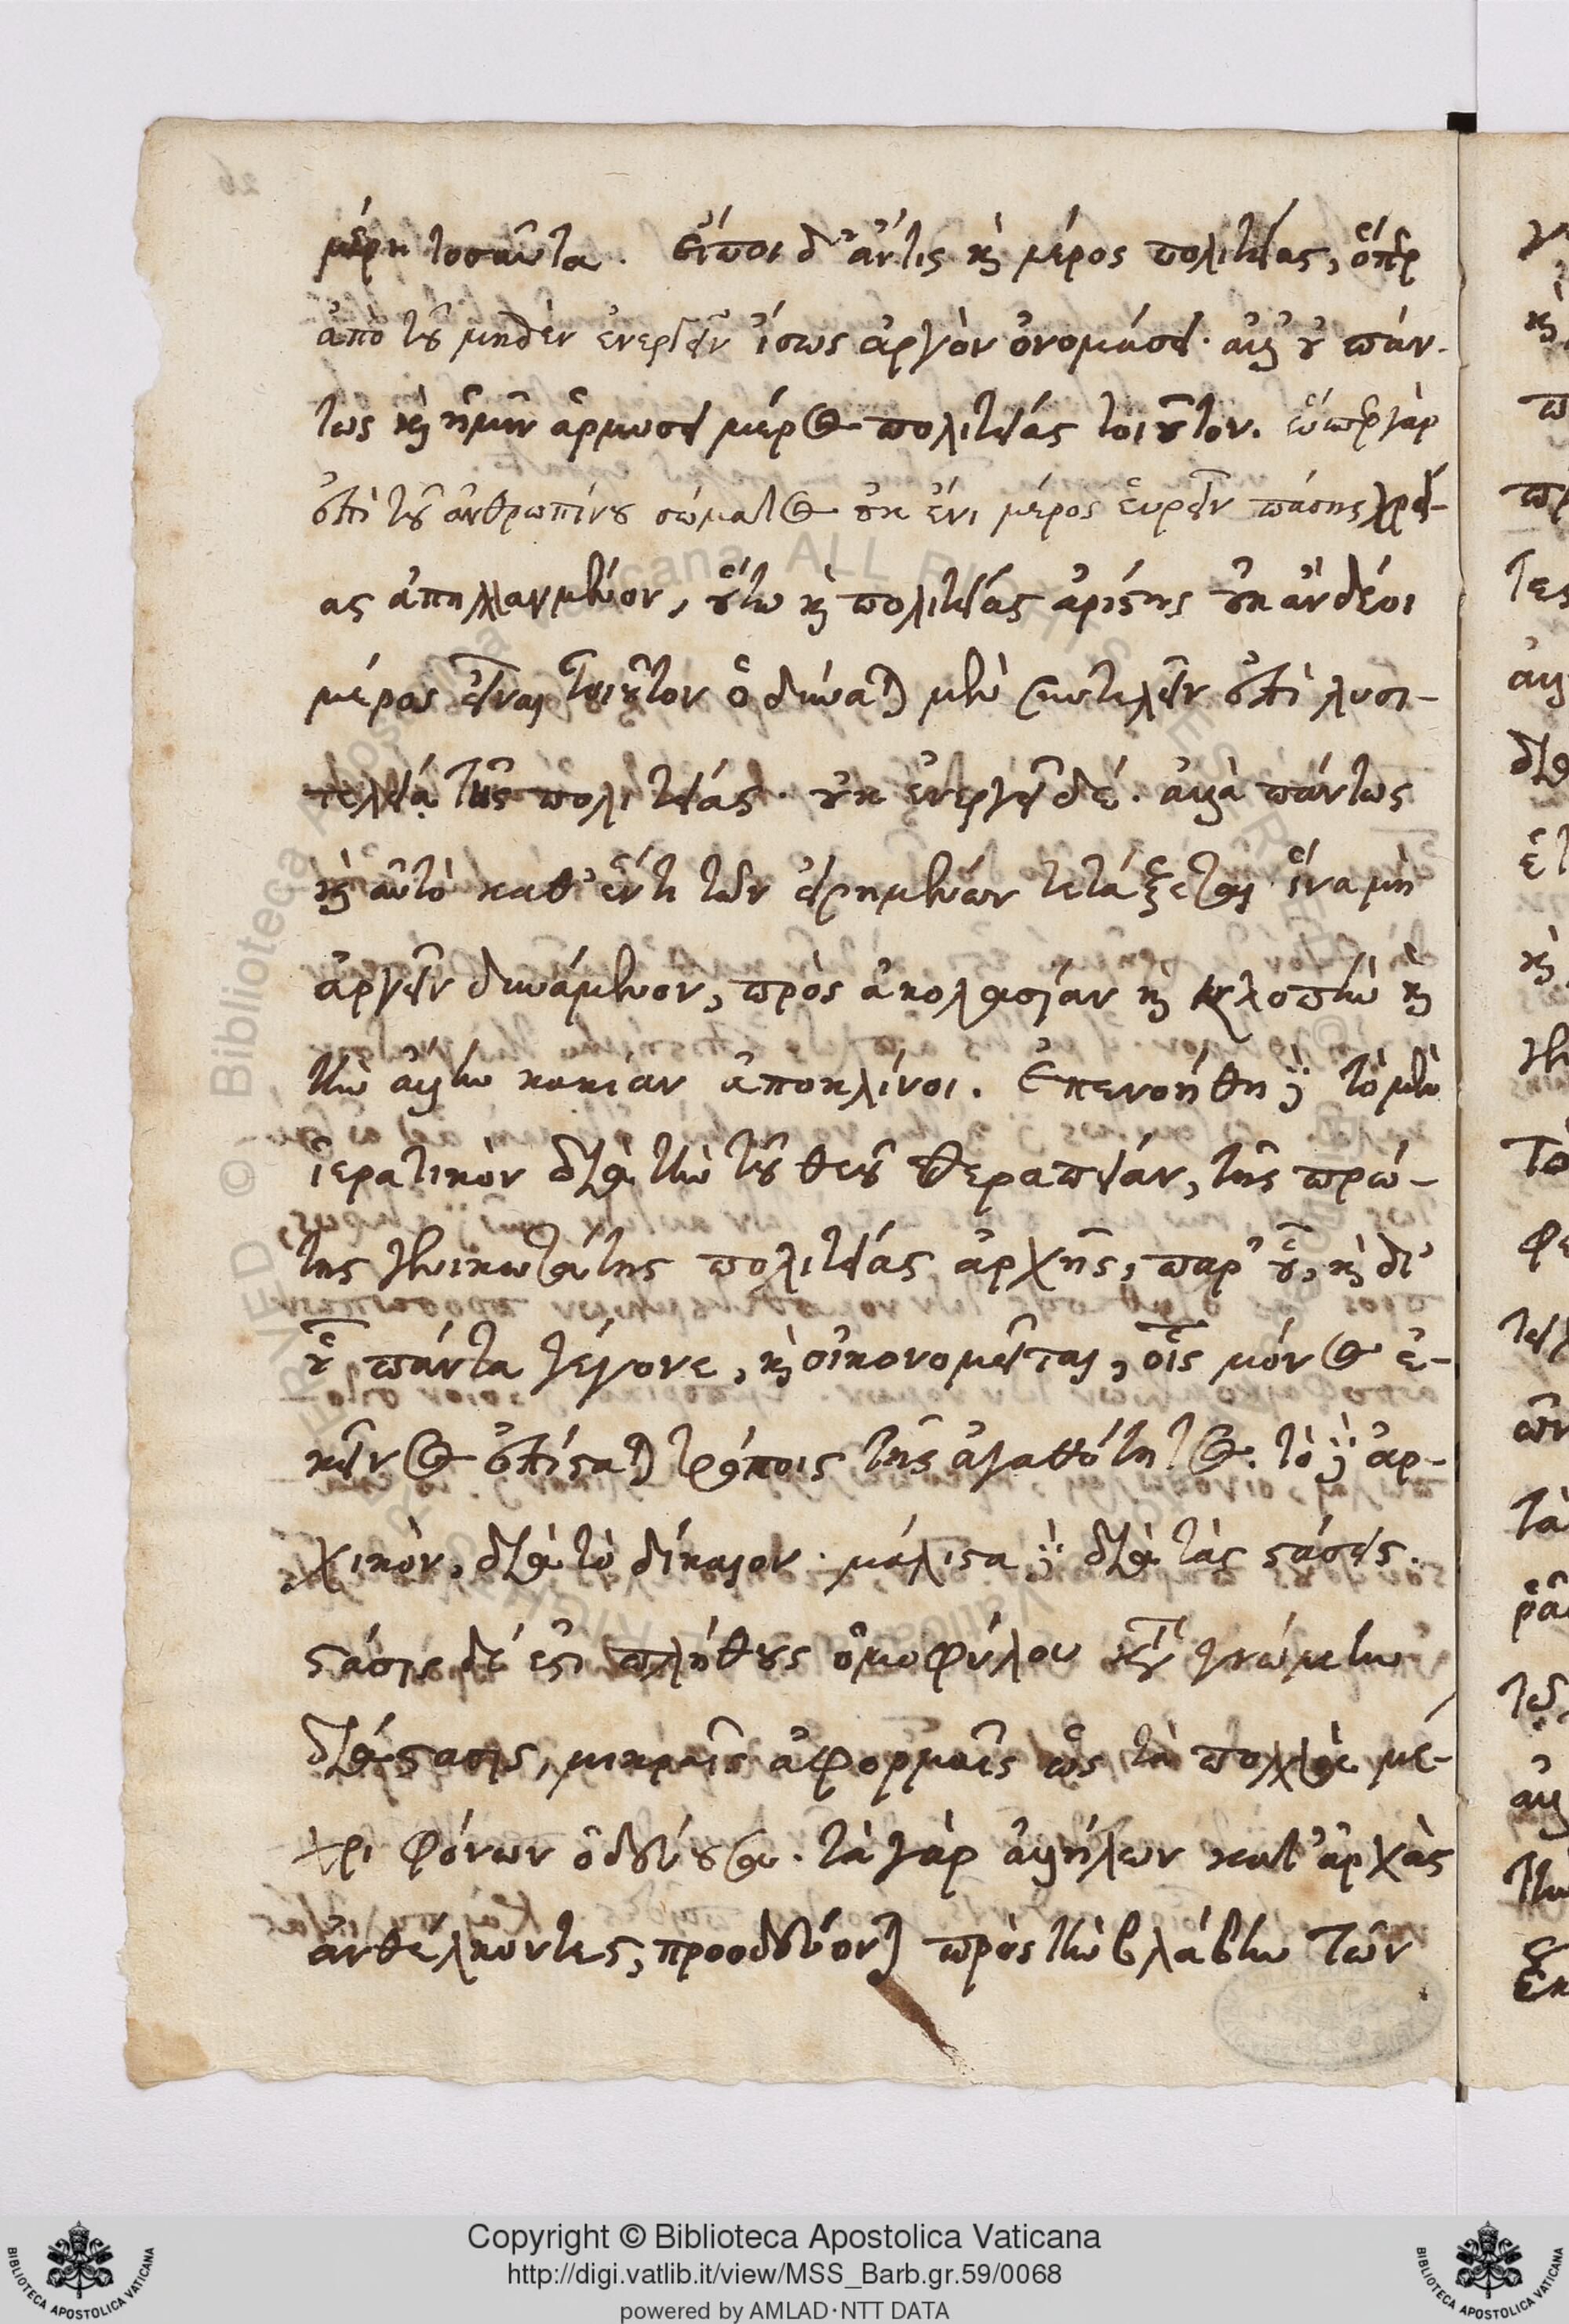 μέρη τοσαῦτα. εἴποι δ' ἄν τις καὶ μέρος πολιτείας, ὅπερ
ἀπὸ τοῦ μηδὲν ἐνεργεῖν ἴσως ἀργὸν ὀνομάσει. ἀλλ' οὐ πάν-
τως καὶ ἡμῖν ἁρμόσει μέρος πολιτείας τοιοῦτον. ὥσπερ γὰρ
ἐπὶ τοῦ ἀνθρωπίνου σώματος οὐκ ἔνι μέρος εὑρεῖν πάσης χρεί-
ας ἀπηλλαγμένον, οὕτω καὶ πολιτείας ἀρίστης οὐκ ἂν δέοι
μέρος εἶναι τοιοῦτον ὃ δύναται μὲν συντελεῖν ἐπὶ λυσι-
τελείᾳ τῆς πολιτείας. οὐκ ἐνεργεῖ δέ. ἀλλὰ πάντως
καὶ αὐτὸ καθ' ἕν τι τῶν εἰρημένων τετάξεται ἵνα μὴ
ἀργεῖν δυνάμενον, πρὸς ἀκολασίαν καὶ κλοπὴν καὶ
τὴν ἄλλην κακίαν ἀποκλίνοι. Ἐπενοήθη δὲ τὸ μὲν
ἱερατικὸν διὰ τὴν τοῦ θεοῦ θεραπείαν, τῆς πρώ-
της γενικωτάτης πολιτείας ἀρχῆς, παρ' οὗ, καὶ δι'
οὗ πάντα γέγονε, καὶ οἰκονομεῖται, οἷς μόνος ἐ-
κεῖνος ἐπίσταται τρόποις τῆς ἀγαθότητος. τὸ δὲ ἀρ-
χικὸν, διὰ τὸ δίκαιον. μάλιστα δὲ διὰ τὰς στάσεις.
στάσις δέ ἐστι πλήθους ὁμοφύλου κατὰ γνώμην
διάστασις, μικραῖς ἀφορμαῖς ὡς τὰ πολλὰ μέ-
χρι φόνων ὁδεύουσα. τὰ γὰρ ἀλλήλων κατ' ἀρχὰς
ἀνθέλκοντες, προοδεύονται πρὸς τὴν βλάβην τῶν
Copyright © Biblioteca Apostolica Vaticana
http://digi.vatlib.it/view/MSS_Barb.gr.59/0068
powered by AMLAD·NTT DATA